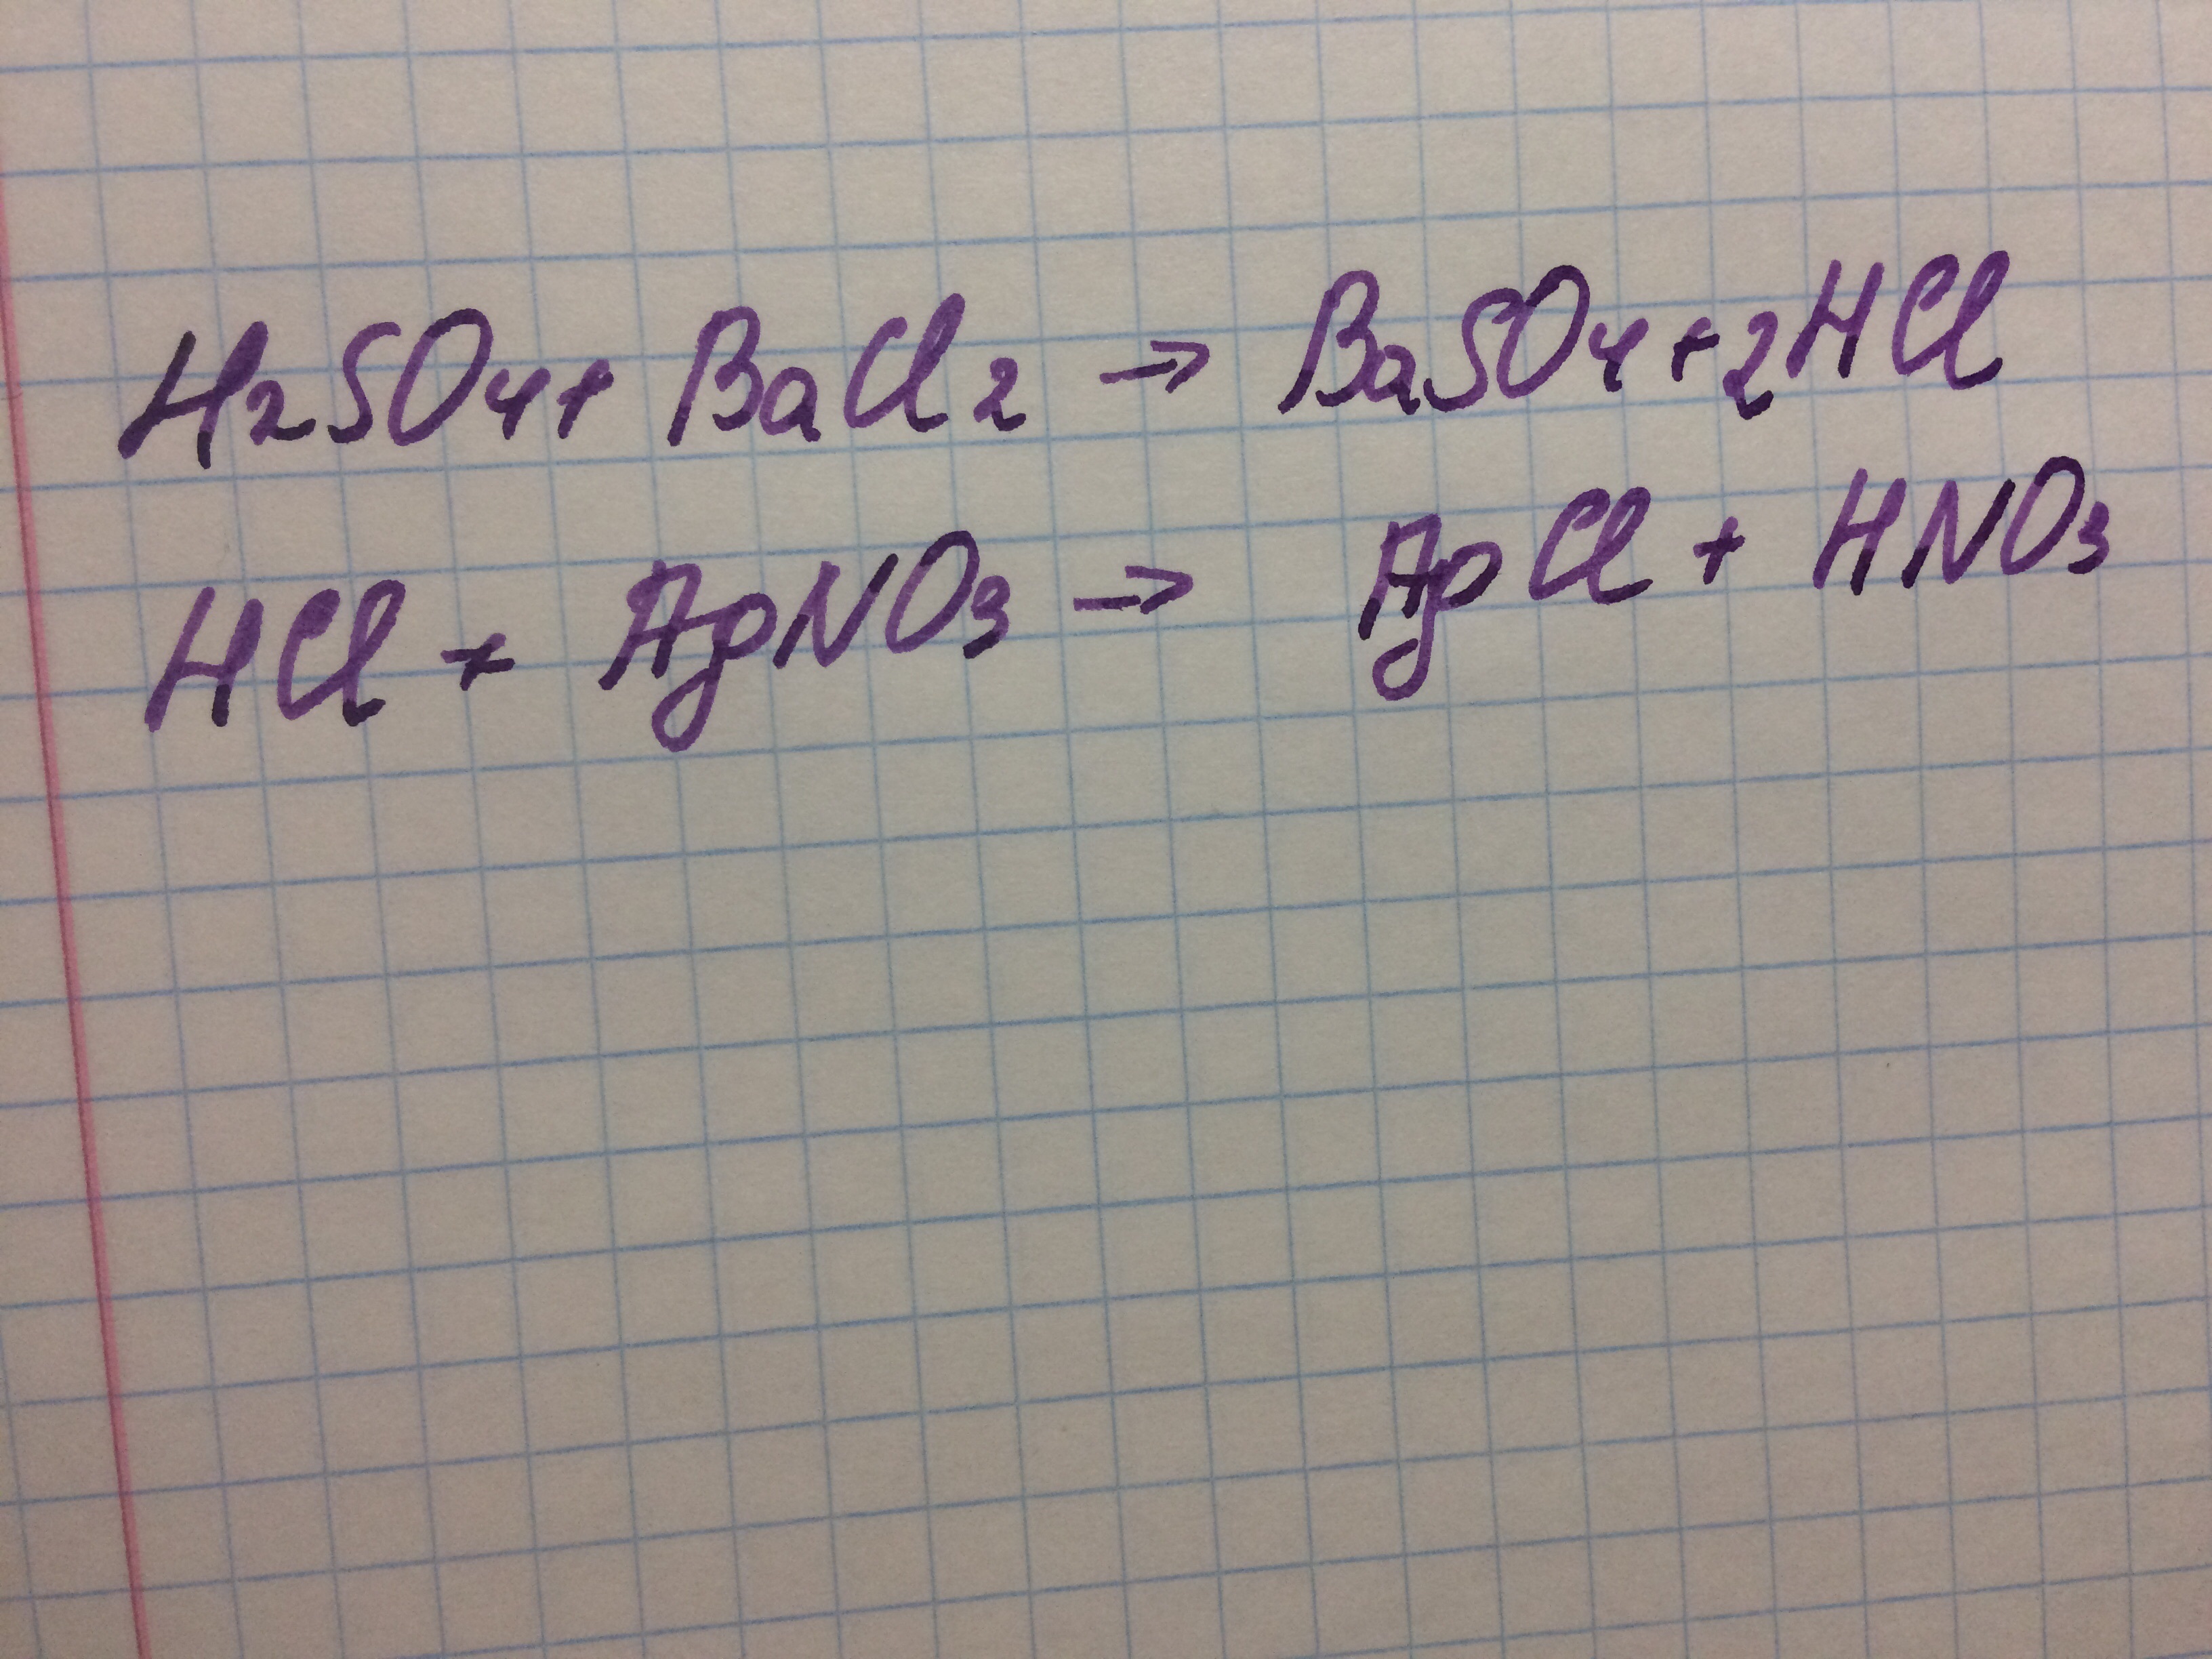 H2SO4+ BaCl2 → BaSO4+2HCl
HCl + AgNO3 → AgCl + HNO3